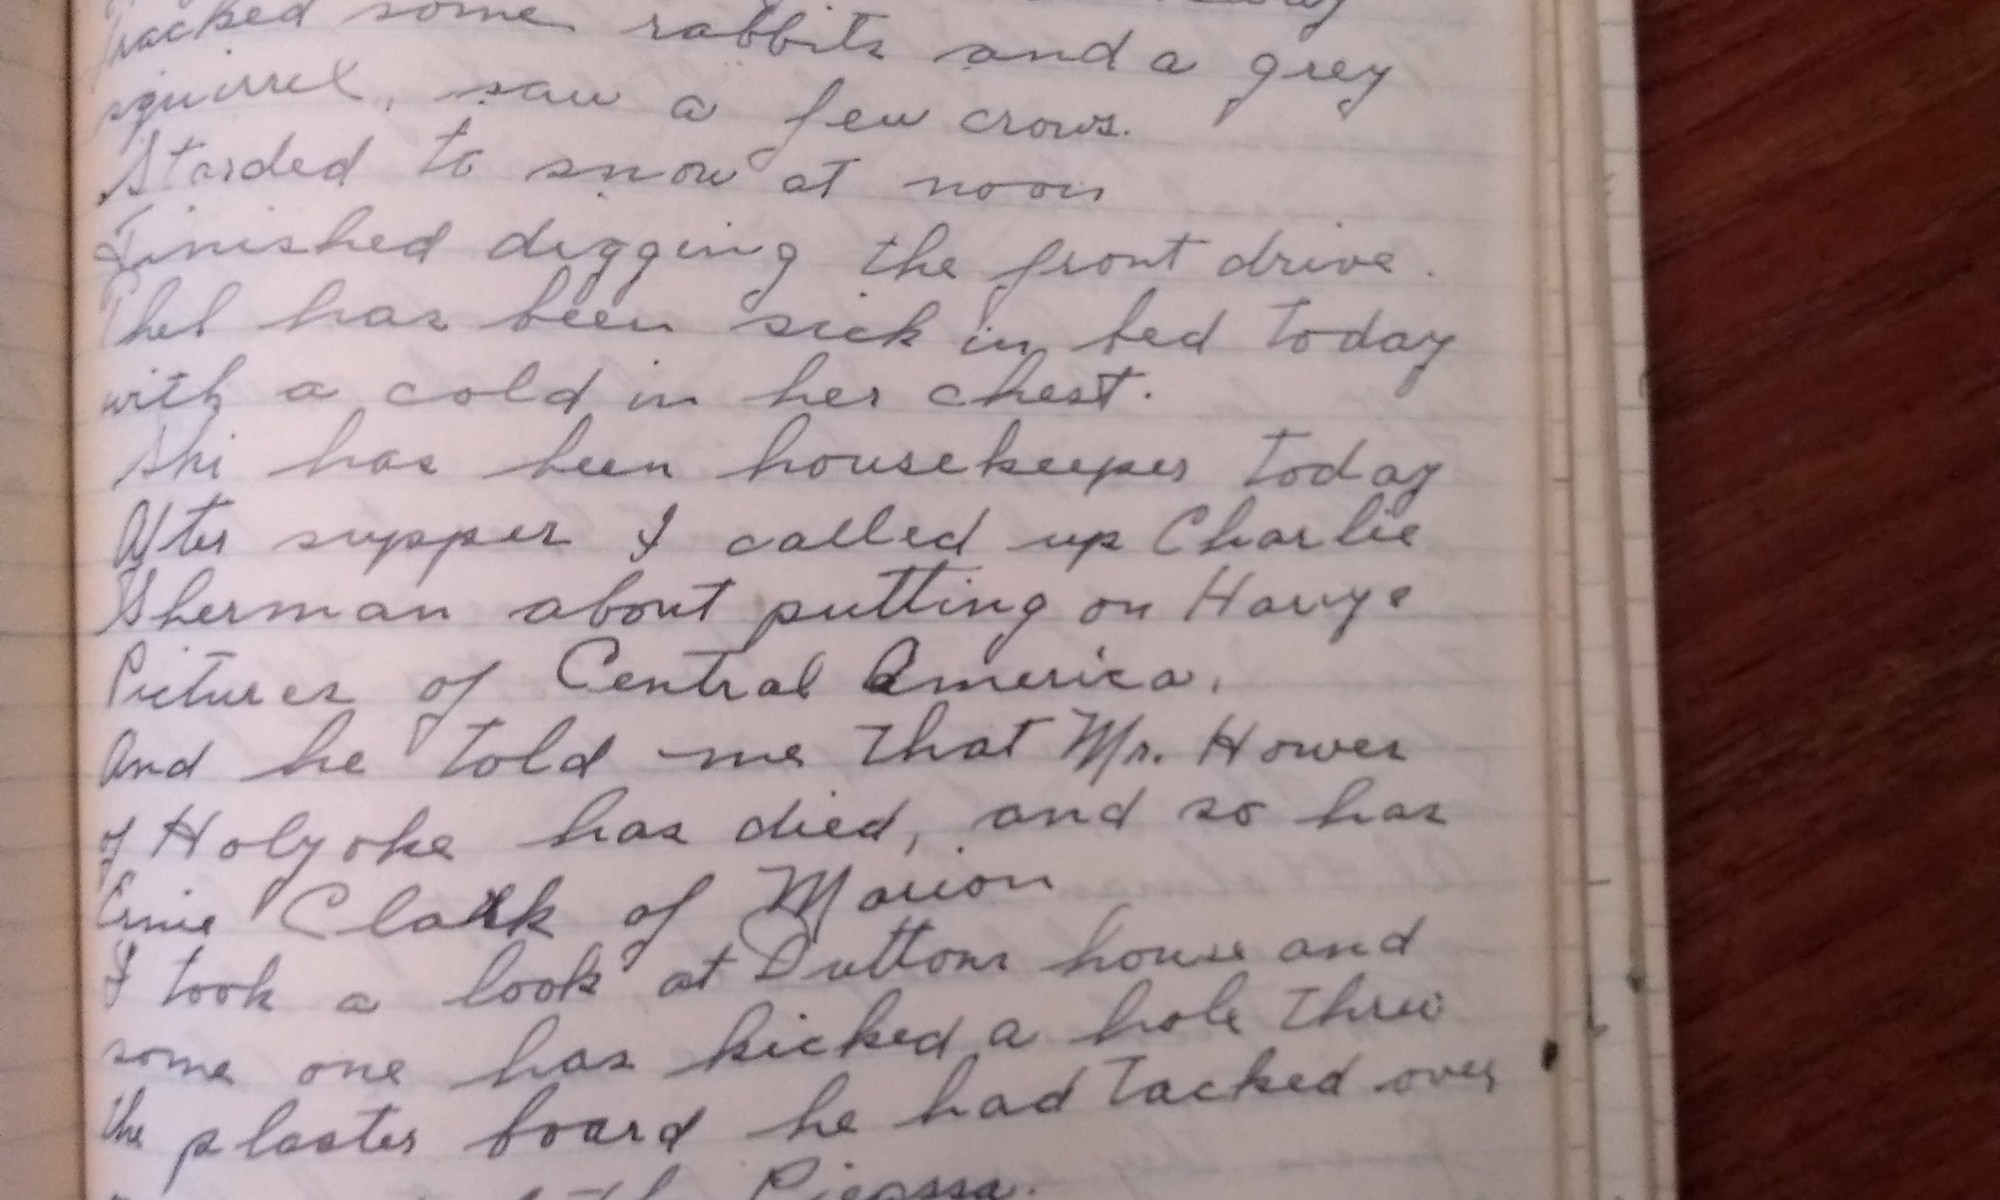 tracked some rabbits and a grey
squirrel, saw a few crows.
Starded to snow at noon
Finished digging the front drive.
Thel has been sick in bed today
with a cold in her chest.
Ski has been housekeeper today
After supper I called up Charlie
Sherman about putting on Harrys
Pictures of Central America.
And he told me that Mr. Hower
of Holyoke has died, and so has
Ernie Clark of Marion
I took a look at Duttons house and
some one has kicked a hole threw
the plaster board he had tacked over